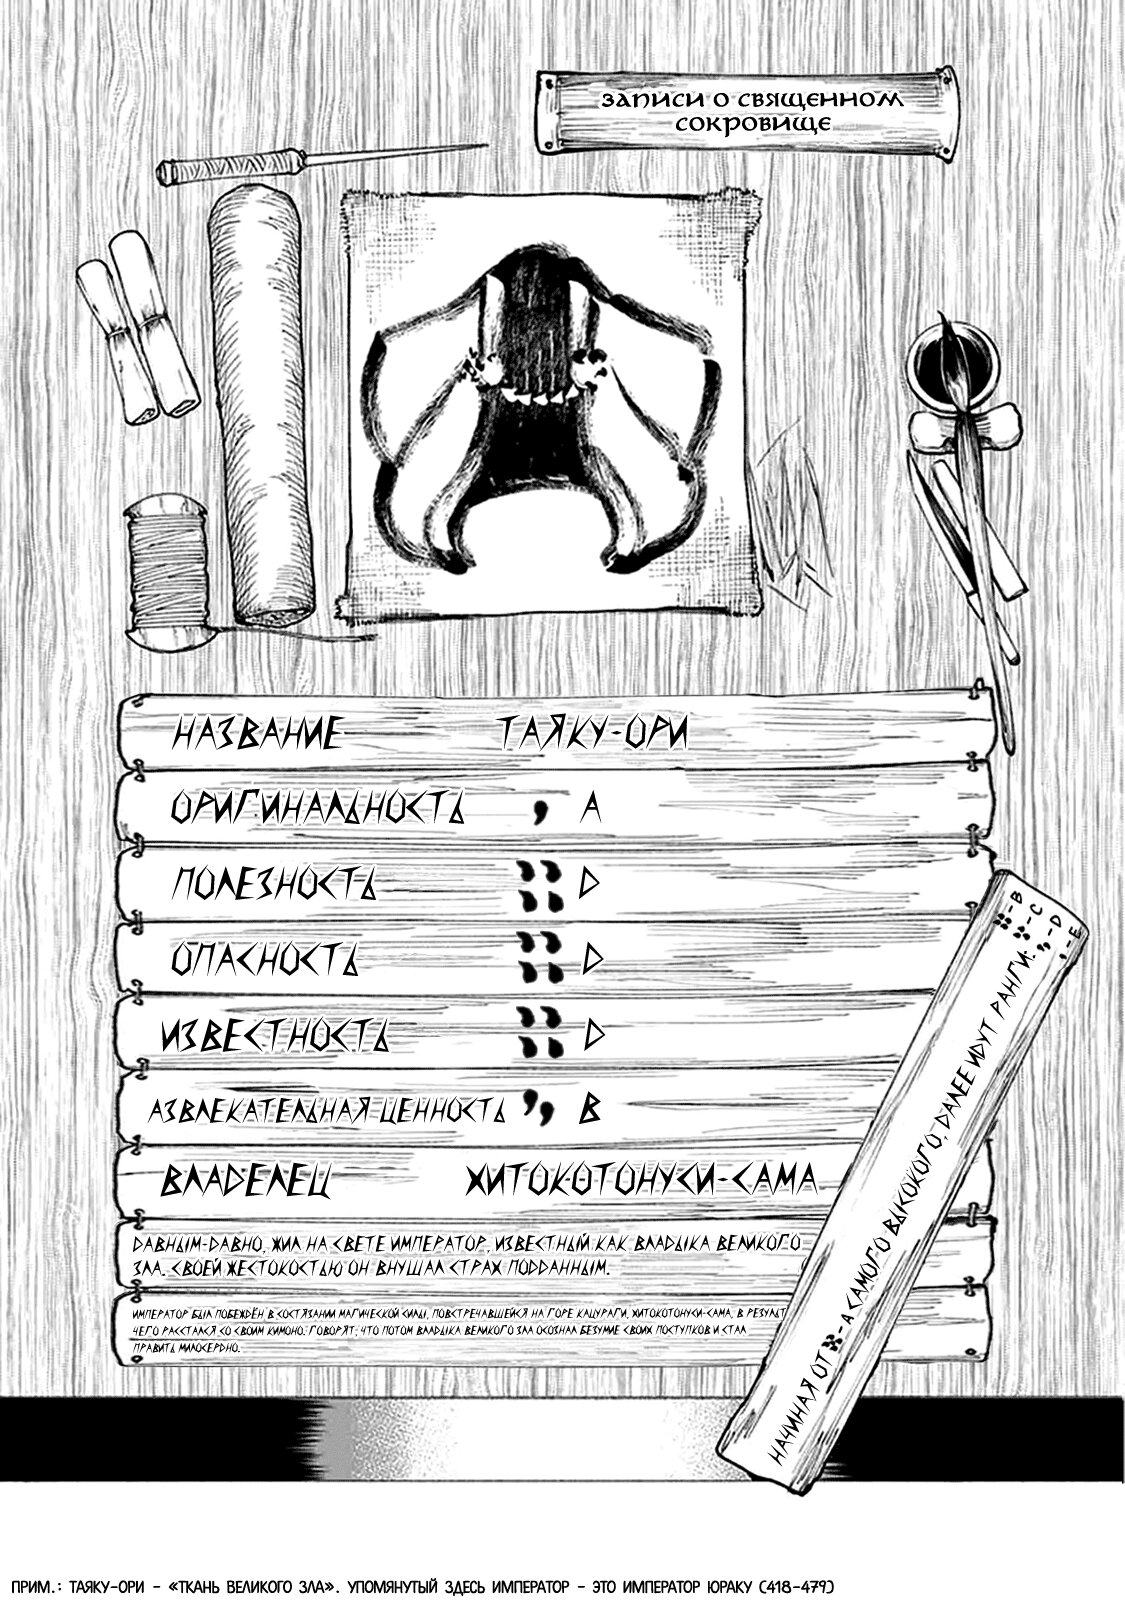 ЗАПИСИ О СВЯЩЕННОМ
СОКРОВИЩЕ
НАЗВАНИЕ ТАЯКУ-ОРИ
ОРИГИНАЛЬНОСТЬ A
ПОЛЕЗНОСТЬ D
ОПАСНОСТЬ D
ИЗВЕСТНОСТЬ D
АЗВЛЕКАТЕЛЬНАЯ ЦЕННОСТЬ B
ВЛАДЕЛЕЦ ХИТОКОТОНУСИ-САМА
ДАВНЫМ-ДАВНО, ЖИЛ НА СВЕТЕ ИМПЕРАТОР, ИЗВЕСТНЫЙ КАК ВЛАДЫКА ВЕЛИКОГО
ЗЛА. СВОЕЙ ЖЕСТОКОСТЬЮ ОН ВНУШАЛ СТРАХ ПОДДАННЫМ.
ИМПЕРАТОР БЫЛ ПОБЕЖДЁН В СОСТЯЗАНИИ МАГИЧЕСКОЙ СИЛЫ, ПОВСТРЕЧАВШЕЙСЯ НА ГОРЕ КАЦУРАГИ, ХИТОКОТОНУСИ-САМА, В РЕЗУЛЬТ
ЧЕГО РАССТАЛСЯ СО СВОИМ КИМОНО. ГОВОРЯТ, ЧТО ПОТОМ ВЛАДЫКА ВЕЛИКОГО ЗЛА ОСОЗНАЛ БЕЗУМИЕ СВОИХ ПОСТУПКОВ И СТАЛ
ПРАВИТЬ МИЛОСЕРДНО.
НАЧИНАЯ ОТ - А САМОГО ВЫСОКОГО, ДАЛЕЕ ИДУТ РАНГИ:
- B
- C
- D
- E
ПРИМ.: ТАЯКУ-ОРИ - «ТКАНЬ ВЕЛИКОГО ЗЛА». УПОМЯНУТЫЙ ЗДЕСЬ ИМПЕРАТОР - ЭТО ИМПЕРАТОР ЮРАКУ (418-479)